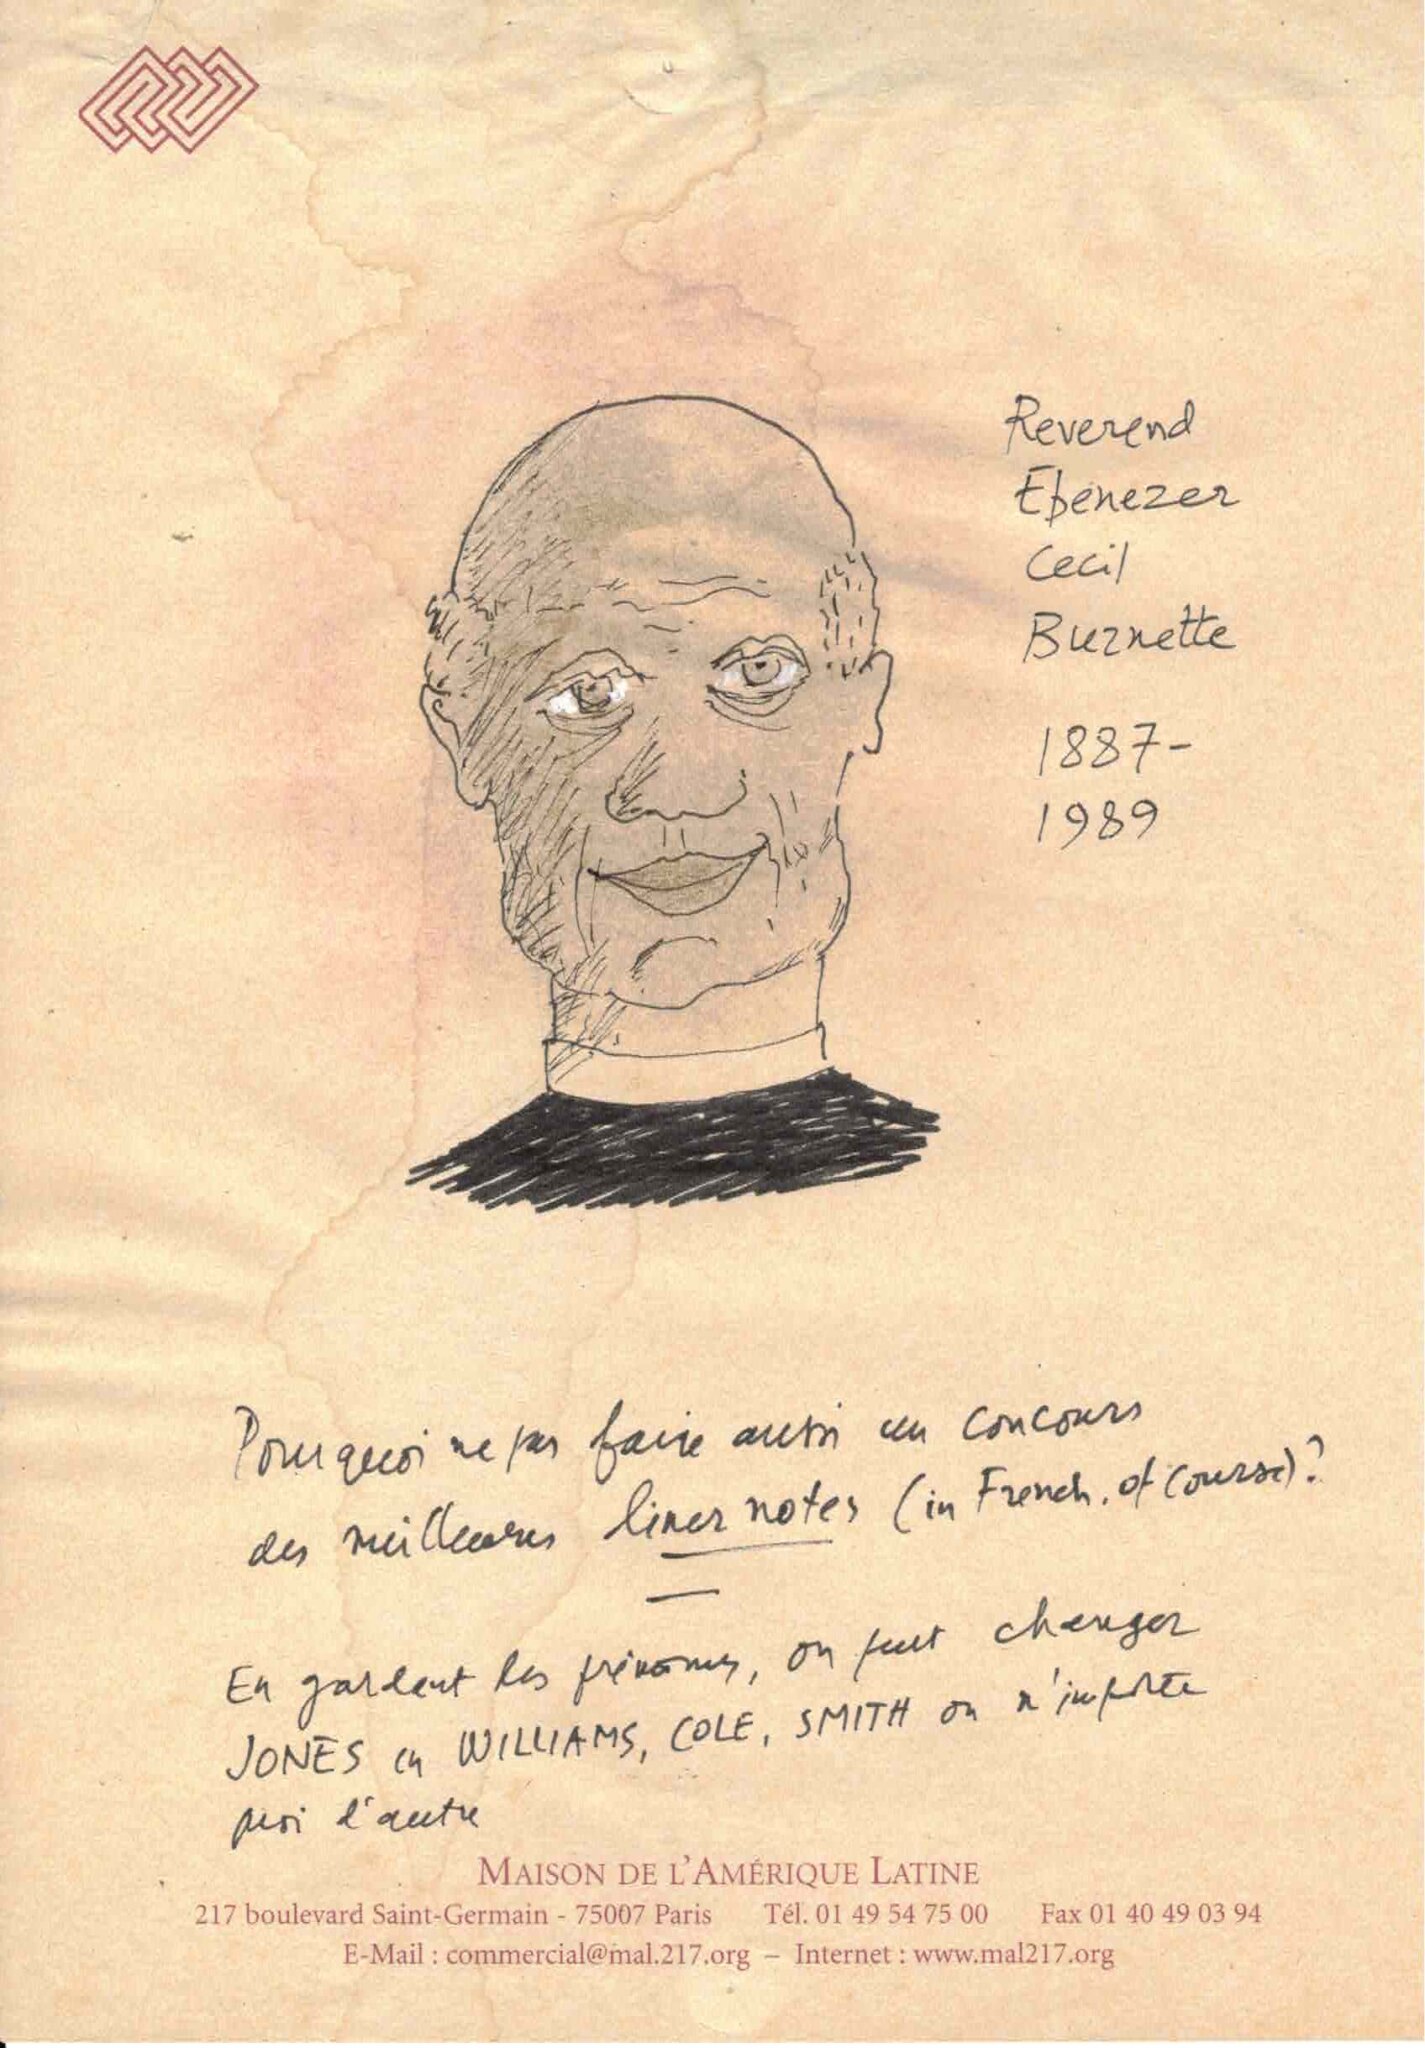 Reverend
Ebenezer
Cecil
Burnette
1887-
1989
Pourquoi ne pas faire aussi un concours
des meilleures liner notes (in French, of course)?
En gardant les prénoms, on peut changer
JONES en WILLIAMS, COLE, SMITH ou n'importe
quoi d'autre
MAISON DE L'AMÉRIQUE LATINE
217 boulevard Saint-Germain - 75007 Paris Tél. 01 49 54 75 00 Fax 01 40 49 03 94
E-Mail : commercial@mal.217.org – Internet : www.mal217.org